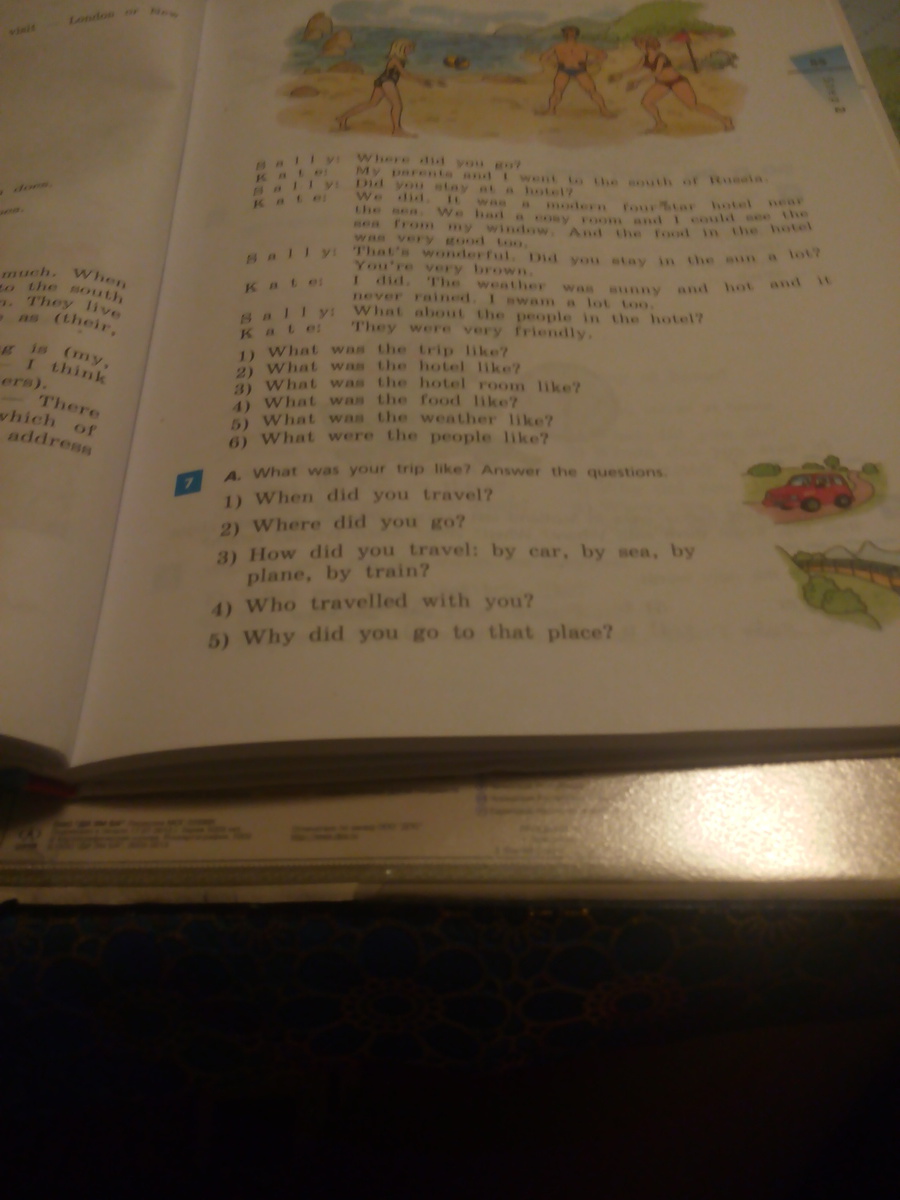 visit London or New
does.
much. When
to the south
They live
as (their,
g is (my,
I think
ers).
— There
which of
address
55
Sally: Where did you go?
Kate: My parents and I went to the south of Russia.
Sally: Did you stay at a hotel?
Kate: We did. It was a modern four-star hotel near
the sea. We had a cosy room and I could see the
sea from my window. And the food in the hotel
was very good too.
Sally: That's wonderful. Did you stay in the sun a lot?
You're very brown.
Kate: I did. The weather was sunny and hot and it
never rained. I swam a lot too.
Sally: What about the people in the hotel?
Kate: They were very friendly.
1) What was the trip like?
2) What was the hotel like?
3) What was the hotel room like?
4) What was the food like?
5) What was the weather like?
6) What were the people like?
7 A. What was your trip like? Answer the questions.
1) When did you travel?
2) Where did you go?
3) How did you travel: by car, by sea, by
plane, by train?
4) Who travelled with you?
5) Why did you go to that place?